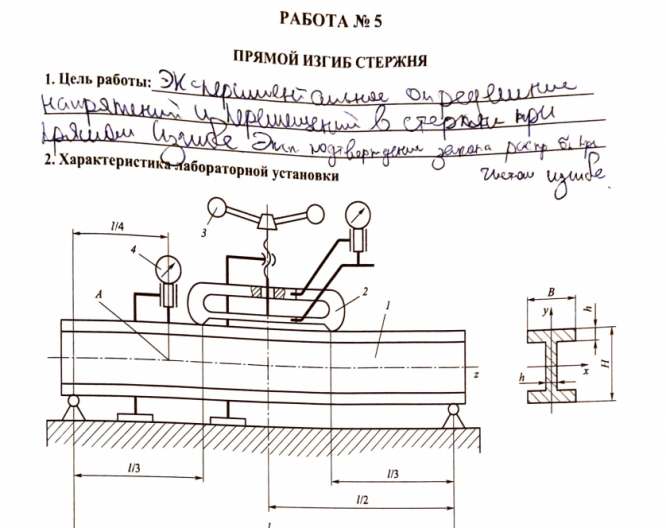 РАБОТА № 5
ПРЯМОЙ ИЗГИБ СТЕРЖНЯ
1. Цель работы: Экспериментальное определение
напряжений и перемещений в стержн при
прямом изгибе Эксп подтверждения закона распр б. при
2. Характеристика лабораторной установки чистом изгибе.
l/4
3
4
2
A
1
B
y
h
z
h
x
H
l/3
l/3
l/2
l